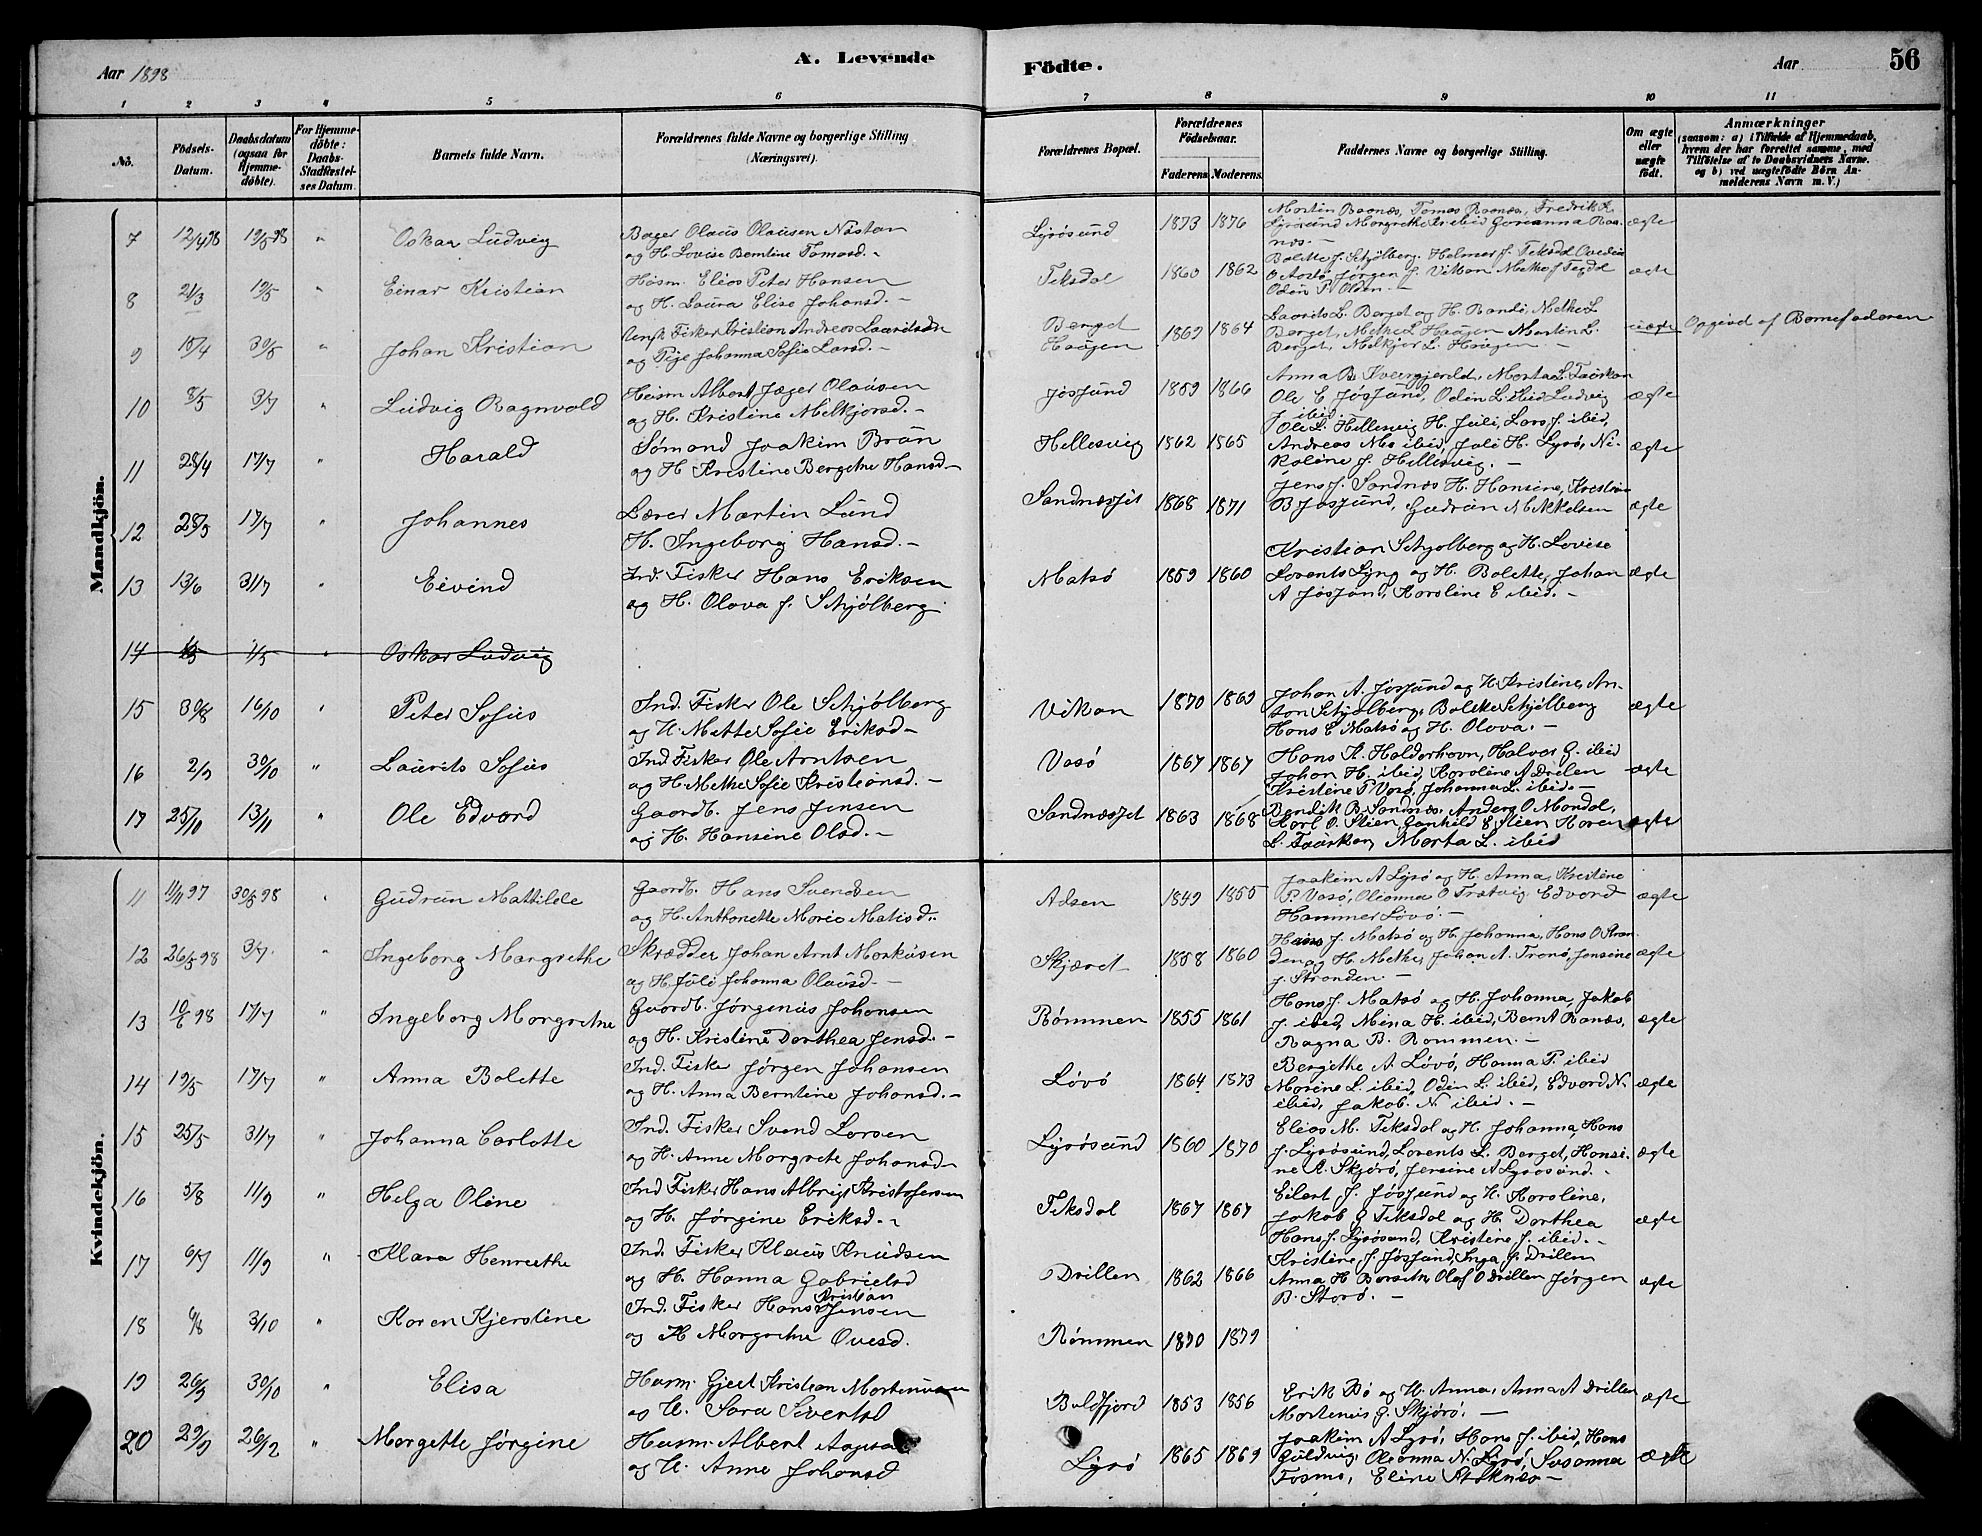 Aar 1898
A. Levende
Födte.
Aar
56
1 2 3 4 5 6 7 8 9 10 11
No.
Födsels-
Datum.
Daabsdatum
(ogsaa for
Hjemme-
döbte).
For Hjemme-
döbte:
Daabs-
Stadfæstel-
ses Datum.
Barnets fulde Navn.
Forældrenes fulde Navne og borgerlige Stilling
(Næringsvei).
Forældrenes Bopæl.
Forældrenes
Födselsaar.
Faderens Moderens
Faddernes Navne og borgerlige Stilling.
Om ægte
eller
uægte
födt.
Anmærkninger
(saasom: a) i Tilfælde af Hjemmedaab,
hvem der har forrettet samme, med
Tilföielse af to Daabsvidners Navne.
og b) ved uægtefödte Börn An-
melderens Navn m. V.)
Mandkjön.
7 12/4 98 19/5 98 " Oskar Ludvig
Bager Olaus Olausen Nastan
og H. Lovise Berntine Tomasd.
Lysösund 1873 1876
ægte
8 21/3 19/5 " Einar Kristian
Husm. Elias Peter Hansen
og H. Laura Elise Johansd.
Teksdal 1860 1862
ægte
9 15/4 30/5 " Johan Kristian
Fisker Kristian Andreas Lauritsen
og Pige Johanna Sofie Larsd.
Berget
Haugen 1869 1864
Berget, Methe L. Haugen Martin L.
Berget, Melkjor L. Haugen
uægte Opgivet af Barnefaderen
10 8/5 3/7 " Ludvig Ragnvald
Husm Albert Jæger Olausen
og H. Kristine Melkjorsd.
Jøssund 1859 1866
Ole E Jøssund, Odin L. ibid Ludvig
J. ibid.
ægte
11 28/4 17/7 " Harald
Sømand Joakim Brun
og H Kristine Bergethe Hansd.
Hellesvig 1862 1865
Ole L. Hellesvig H. Juli, Lars J. ibid,
Andreas M. ibid, Juli H. Lysø, Ni-
koline J. Hellesvig.
ægte
12 28/5 17/7 " Johannes
Lærer Martin Lund
H. Ingeborg Hansd.
Sandnæsset 1868 1871
Jens J. Sandnæs H. Hansine, Kristian
B Jøssund, Gudrun M Mikkelsen
ægte
13 13/6 31/7 " Eivind
Ind. Fisker Hans Eriksen
og H. Olava J. Schjølberg
Matsø 1859 1860
Kristian Schjolberg og H. Lovise
Lorents Lyng og H. Bolette, Johan
A Jøssund, Karoline E ibid.
ægte
14 1/5 " Oskar Ludvig
15 30/8 16/10 " Peter Sofus
Ind. Fisker Ole Schjølberg
og H. Mette Sofie Eriksd
Vikan 1870 1869
Johan A. Jøssund og H Kristine, An-
ton Schjølberg, Bolette Schjølberg
Hans E Matsø og H. Olava.
ægte
16 2/9 30/10 " Laurits Sofus
Ind Fisker Ole Arntsen
og H. Methe Sofie Kristiansd.
Vasø 1867 1867
Hans K. Haldorhavn, Halvor G. ibid
Johan H. ibid, Karoline A Drilen
Kristine P. Vasø, Johanna L. ibid.
ægte
17 25/10 13/11 " Ole Edvard
Gaardb. Jens Jensen
og H. Hansine Olsd.
Sandnæsset 1863 1868
Bendik B. Sandnæs, Anders O Mandal,
Karl O. Stien, Gunhild E Stien Karen
L. Taurkan, Marta L. ibid
ægte
Kvindekjön.
11 11/11 97 30/5 98 " Gudrun Mattilde
Gaardb. Hans Svendsen
og H. Anthonette Marie Matisd.
Adsen 1849 1855
Joakim A Lysø og H. Anna, Kristine
P. Vasø, Oleanna O Trætvig, Edvard
Hammer Løvø.
ægte
12 26/5 98 3/7 Ingeborg Margrethe
Skrædder Johan Arnt Markusen
og H. Juli Johanna Olausd.
Skjæret 1858 1860
Hans J. Matsø og H Johanna, Hans O Stran-
den og H. Methe, Johan A. Tranø, Jensine
J. Stranden.
ægte
13 10/6 98 17/7 " Ingeborg Margrethe
Gaardb. Jørgenus Johansen
og H. Kristine Dorthea Jensd.
Rømmen 1855 1861
Hans J. Matsø og H. Johanna, Jakob
J. ibid, Mina H. ibid, Bernt Ranæs,
Ragna B. Rommen.
ægte
14 19/5 17/7 " Anna Bolette
Ind. Fisker Jørgen Johansen
og H. Anna Berntine Johansd.
Løvø 1864 1873
Bergithe A Løvø, Hanna P. ibid
Marine L. ibid, Odin L. ibid, Edvard N.
ibid, Jakob N ibid.
ægte
15 25/5 31/7 " Johanna Carlotte
Ind. Fisker Svend Larsen
og H. Anne Margrete Johansd
Lysøsund 1860 1870
Elias M. Teksdal og H. Johanna, Hans
J. Lysøsund, Lorents L. Berget, Hansi-
ne A. Skjørø, Jensine A Lysøsund.
ægte
16 5/8 11/9 " Helga Oline
Ind Fisker Hans Albrigt Kristofersen
og H. Jørgine Eriksd.
Teksdal 1867 1867
Eilert J. Jøssund og H. Karoline,
Jakob G Teksdal og H. Dorthea
Hans J. Lysøsund, Kristine J. ibid.
ægte
17 6/7 11/9 " Klara Henriethe
Ind. Fisker Klaus Knudsen
og H. Hanna Gabrielsd
Drillen 1862 1866
Kristine J. Jøssund, Inga J. Drillen
Anna H Borseth, Olaf O Drillen Jørgen
B. Storø.
ægte
18 6/8 3/10 " Karen Kjerstine
Ind. Fisker Hans Kristian Jensen
og H Margrethe Ovesd.
Rømmen 1870 1879
19 26/9 30/10 " Elisa
Husm. Gjert Kristian Mortensen
og H. Sara Sivertsd
Buldfjord 1853 1856
Erik Bø og H. Anna, Anna A Drillen
Mortenus J. Skjørø.
ægte
20 29/9 26/12 " Margette Jørgine
Husm. Albert
og H. Anne Johansd
Lysø 1865 1869
Joakim A Lysø, Hans J. ibid, Hans
Guldvig, Oleanna N. Lysø, Susanna
Fosmo, Eline
ægte